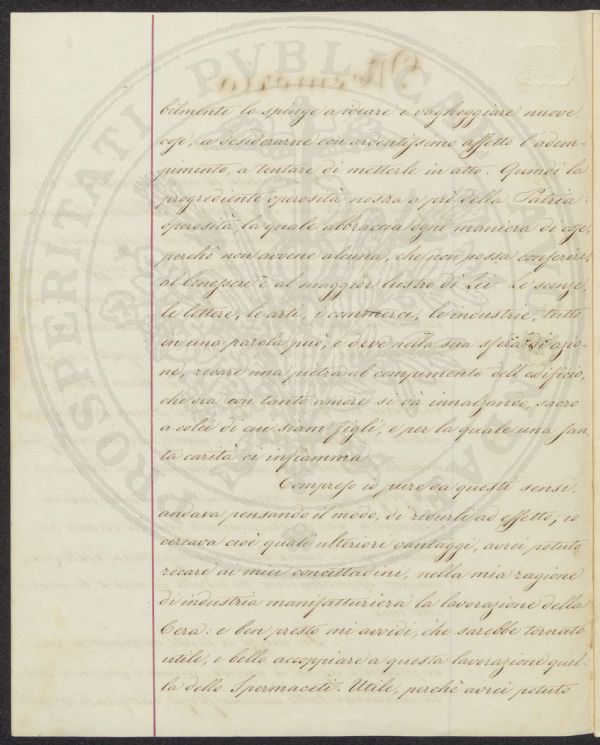 bilmente lo spinge a ideare e vagheggiare nuove
cose, a desiderarne con ardentissimo affetto l'adem-
pimento, a tentare di metterle in atto. Quindi la
progrediente operosità nostra a prò della Patria:
operosità, la quale abbraccia ogni maniera di cose,
perchè non avvene alcuna, che non possa conferire
al benessere e al maggior lustro di Lei. Le scienze,
le lettere, le arti, i commerci, le industrie, tutto
in una parola può, e deve nella sua sfera di azio-
ne, recare una pietra al compimento dell'edificio,
che ora con tanto amore si va innalzando, sacro
a colei di cui siam figli, e per la quale una san-
ta carità ci infiamma.
Compreso io pure da questi sensi,
andava pensando il modo, di ridurli ad effetto; io
cercava cioè quali ulteriori vantaggi, avrei potuto
recare ai miei concittadini, nella mia ragione
di industria manifatturiera la lavorazione della
Cera: e ben presto mi avvidi, che sarebbe tornato
utile, e bello accoppiare a questa lavorazione quel-
la dello Spermaceti. Utile, perchè avrei potuto
PROSPERITATI PVBLICAE